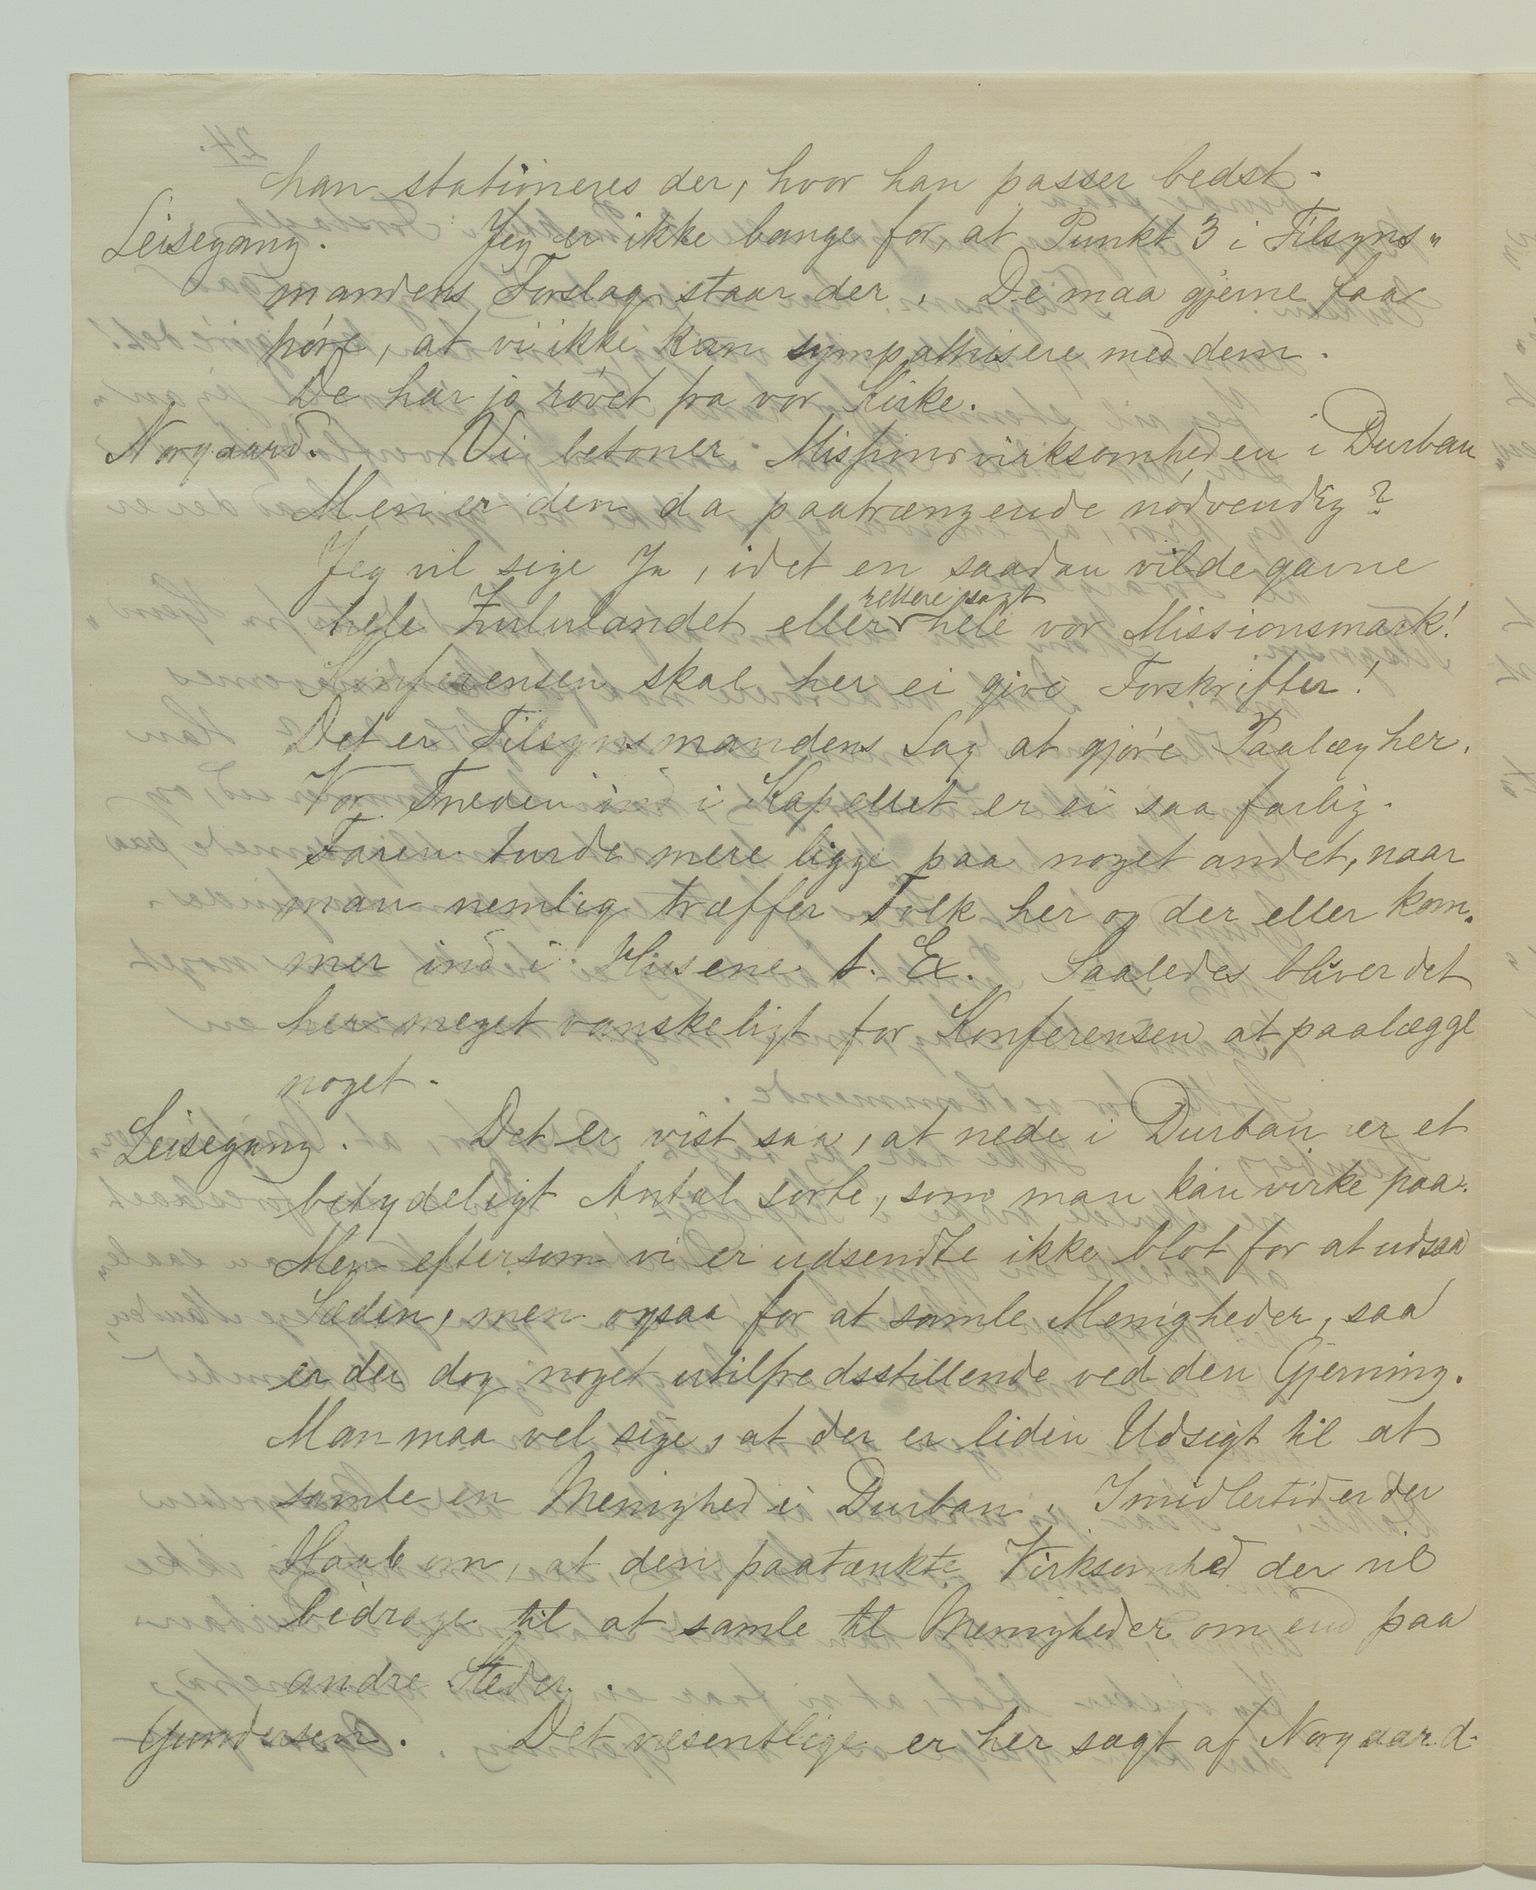 han stationeres der, hvor han passer bedst.
Leisegang. Jeg er ikke bange for, at Punkt 3 i Tilsyns„
mandens Forslag staar der. De maa gjerne faa
høre, at vi ikke kan sympathisere med dem.
De har jo røvet fra vor Kirke.
Norgaard. Vi betoner Missionsvirksomheden i Durban
Men er den da paatrængende nødvendig?
Jeg vil sige Ja, idet en saadan vilde gavne
hele Zululandet eller rettere sagt hele vor Missionsmark!
Konferensen skal her ei give Forskrifter!
Det er Tilsynsmandens Sag at gjøre Paalæg her.
Vor Træden ind i Kapellet er ei saa farlig.
Faren turde mere ligge paa noget andet, naar
man nemlig træffer Folk her og der eller kom„
mer ind i Husene t. Ex. Saaledes bliver det
her meget vanskeligt for Konferensen at paalægge
noget.
Leisegang. Det er vist saa, at nede i Durban er et
betydeligt Antal sorte, som man kan virke paa.
Men eftersom vi er udsendte ikke blot for at udsaa
Sæden, men ogsaa for at samle Menigheder, saa
er der dog noget utilfredsstillende ved den Gjerning.
Man maa vel sige, at der er liden Udsigt til at
samle en Menighed i Durban. Imidlertid er der
Haab om, at den paatænkte Virksomhed der vil
bidrage til at samle til Menigheder om end paa
andre Steder.
Gundersen. Det væsentlige er her sagt af Norgaard.